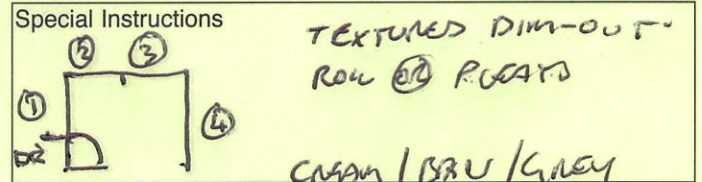 Special Instructions
② ③
① ④
DR
TEXTURED DIM-OUT.
ROLL OR PLEATS
CREAM / BRU / GREY